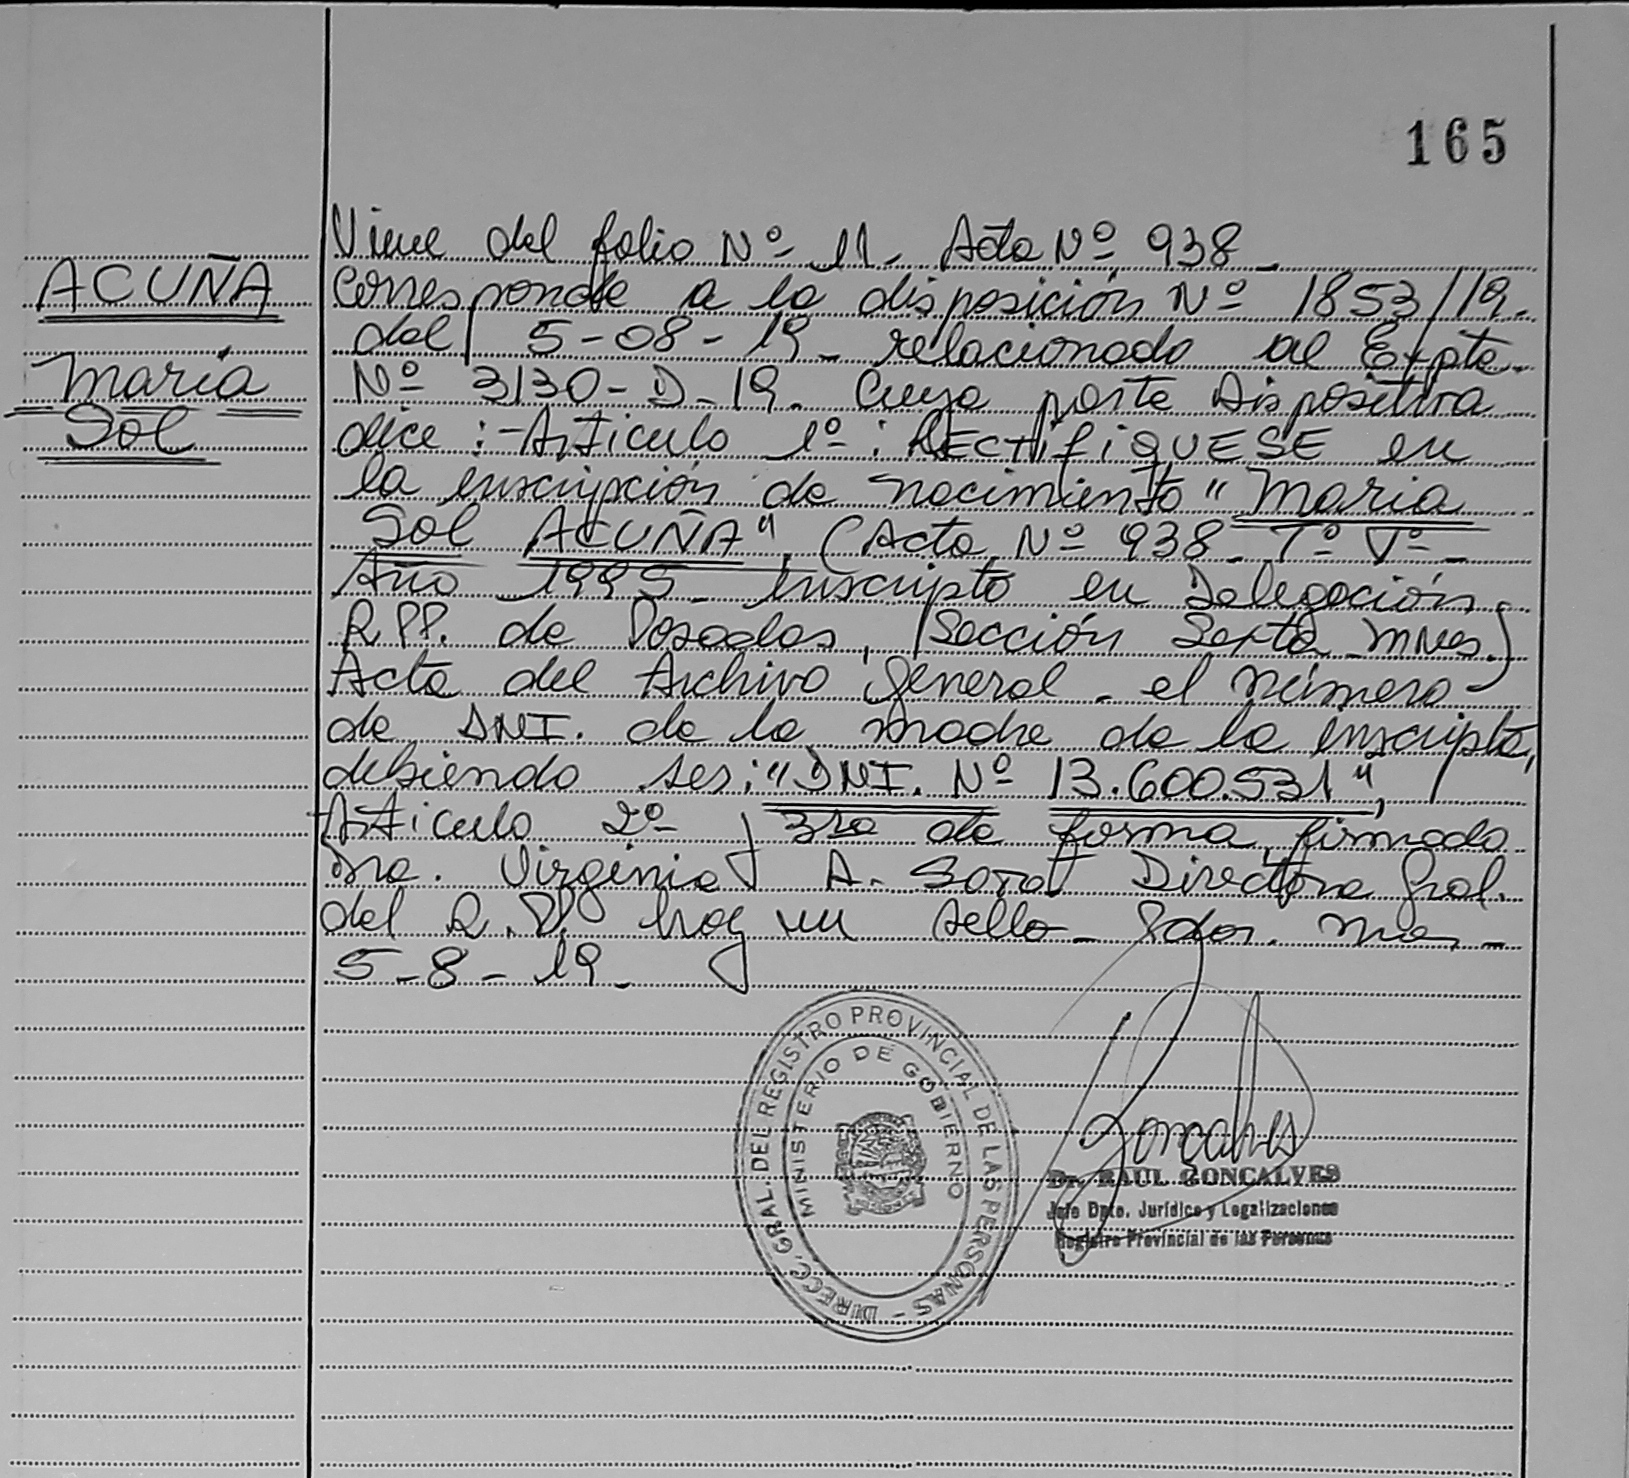 165
ACUÑA
María
Sol
Viene del folio Nº 11. Acta Nº 938.
Corresponde a la disposición Nº 1853/19.
del 5-08-19. relacionado al Expte.
Nº 3130-D-19. Cuya parte Dispositiva
dice:-Articulo 1º: RECTIFIQUESE en
la inscripción de nacimiento "Maria
Sol ACUÑA", (Acta Nº 938. Tº Vº-
Año 1995. Inscripto en Delegación
R.PP. de Posadas, Sección Sexta Mnes.)
Acta del Archivo General. el número
de DNI. de la madre de la inscripta,
debiendo ser: "DNI. Nº 13.600.531",
Articulo 2º y 3ro de forma, firmado
Dra. Virginia A. Directora Gral.
del R.P. hay un sello. Pdas. Mnes-
5-8-19.
DIRECC. GRAL. DEL REGISTRO PROVINCIAL DE LAS PERSONAS -
MINISTERIO DE GOBIERNO
Goncalves
Dr. RAUL GONCALVES
Jefe Dpto. Jurídico y Legalizaciones
Registro Provincial de las Personas